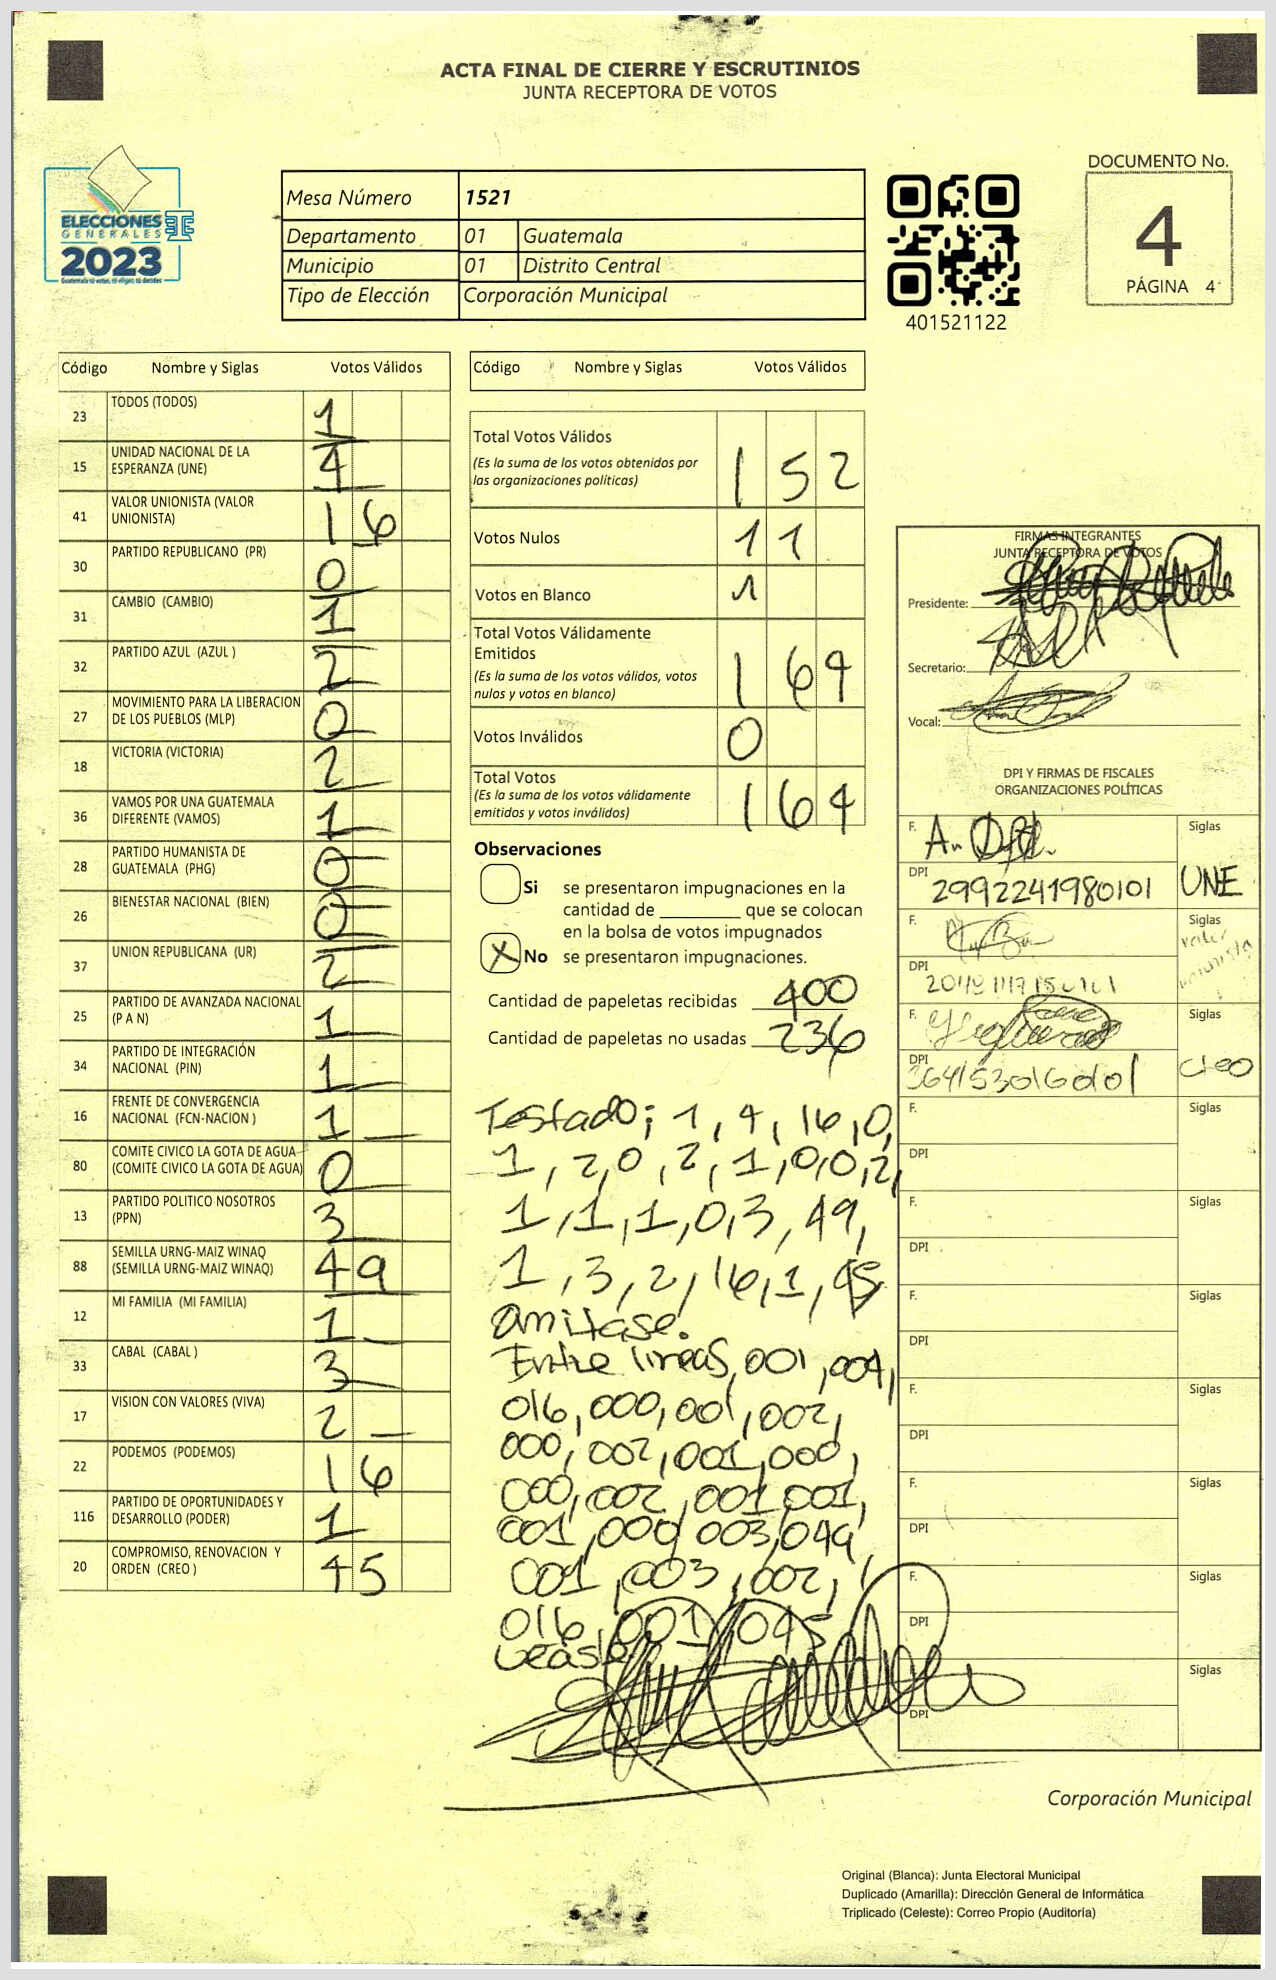 ACTA FINAL DE CIERRE Y ESCRUTINIOS
JUNTA RECEPTORA DE VOTOS
ELECCIONES
GENERALES
2023
Mesa Número 1521
Departamento 01 Guatemala
Municipio 01 Distrito Central
Tipo de Elección Corporación Municipal
401521122
DOCUMENTO No.
4
PÁGINA 4
Código Nombre y Siglas Votos Válidos
23 TODOS (TODOS) 1
15 UNIDAD NACIONAL DE LA ESPERANZA (UNE) 4
41 VALOR UNIONISTA (VALOR UNIONISTA) 16
30 PARTIDO REPUBLICANO (PR) 0
31 CAMBIO (CAMBIO) 1
32 PARTIDO AZUL (AZUL ) 2
27 MOVIMIENTO PARA LA LIBERACION DE LOS PUEBLOS (MLP) 0
18 VICTORIA (VICTORIA) 2
36 VAMOS POR UNA GUATEMALA DIFERENTE (VAMOS) 1
28 PARTIDO HUMANISTA DE GUATEMALA (PHG) 0
26 BIENESTAR NACIONAL (BIEN) 0
37 UNION REPUBLICANA (UR) 2
25 PARTIDO DE AVANZADA NACIONAL (P A N) 1
34 PARTIDO DE INTEGRACIÓN NACIONAL (PIN) 1
16 FRENTE DE CONVERGENCIA NACIONAL (FCN-NACION ) 1
80 COMITE CIVICO LA GOTA DE AGUA (COMITE CIVICO LA GOTA DE AGUA) 0
13 PARTIDO POLITICO NOSOTROS (PPN) 3
88 SEMILLA URNG-MAIZ WINAQ (SEMILLA URNG-MAIZ WINAQ) 49
12 MI FAMILIA (MI FAMILIA) 1
33 CABAL (CABAL ) 3
17 VISION CON VALORES (VIVA) 2
22 PODEMOS (PODEMOS) 16
116 PARTIDO DE OPORTUNIDADES Y DESARROLLO (PODER) 1
20 COMPROMISO, RENOVACION Y ORDEN (CREO ) 45
Código Nombre y Siglas Votos Válidos
Total Votos Válidos 152
(Es la suma de los votos obtenidos por
las organizaciones políticas)
Votos Nulos 11
Votos en Blanco 1
Total Votos Válidamente
Emitidos 164
(Es la suma de los votos válidos, votos
nulos y votos en blanco)
Votos Inválidos 0
Total Votos 164
(Es la suma de los votos válidamente
emitidos y votos inválidos)
Observaciones
Si se presentaron impugnaciones en la
cantidad de ________ que se colocan
en la bolsa de votos impugnados
X No se presentaron impugnaciones.
Cantidad de papeletas recibidas 400
Cantidad de papeletas no usadas 236
Testado; 1, 4, 16, 0,
1, 2, 0, 2, 1, 0, 0, 2,
1, 1, 1, 0, 3, 49,
1, 3, 2, 16, 1, 45
omitase.
Entre lineas, 001, 004,
016, 000, 001, 002,
000, 002, 001, 000,
000, 002, 001, 001,
001, 000, 003, 049
001, 003, 002,
016, 001, 045
Lease
FIRMAS INTEGRANTES
JUNTA RECEPTORA DE VOTOS
Presidente:
Secretario:
Vocal:
DPI Y FIRMAS DE FISCALES
ORGANIZACIONES POLÍTICAS
F. Siglas
DPI 2992241980101 UNE
F. Siglas
valor
unionista
DPI
F. Siglas
DPI creo
F. Siglas
DPI
F. Siglas
DPI
F. Siglas
DPI
F. Siglas
DPI
F. Siglas
DPI
F. Siglas
DPI
Siglas
DPI
Corporación Municipal
Original (Blanca): Junta Electoral Municipal
Duplicado (Amarilla): Dirección General de Informática
Triplicado (Celeste): Correo Propio (Auditoría)